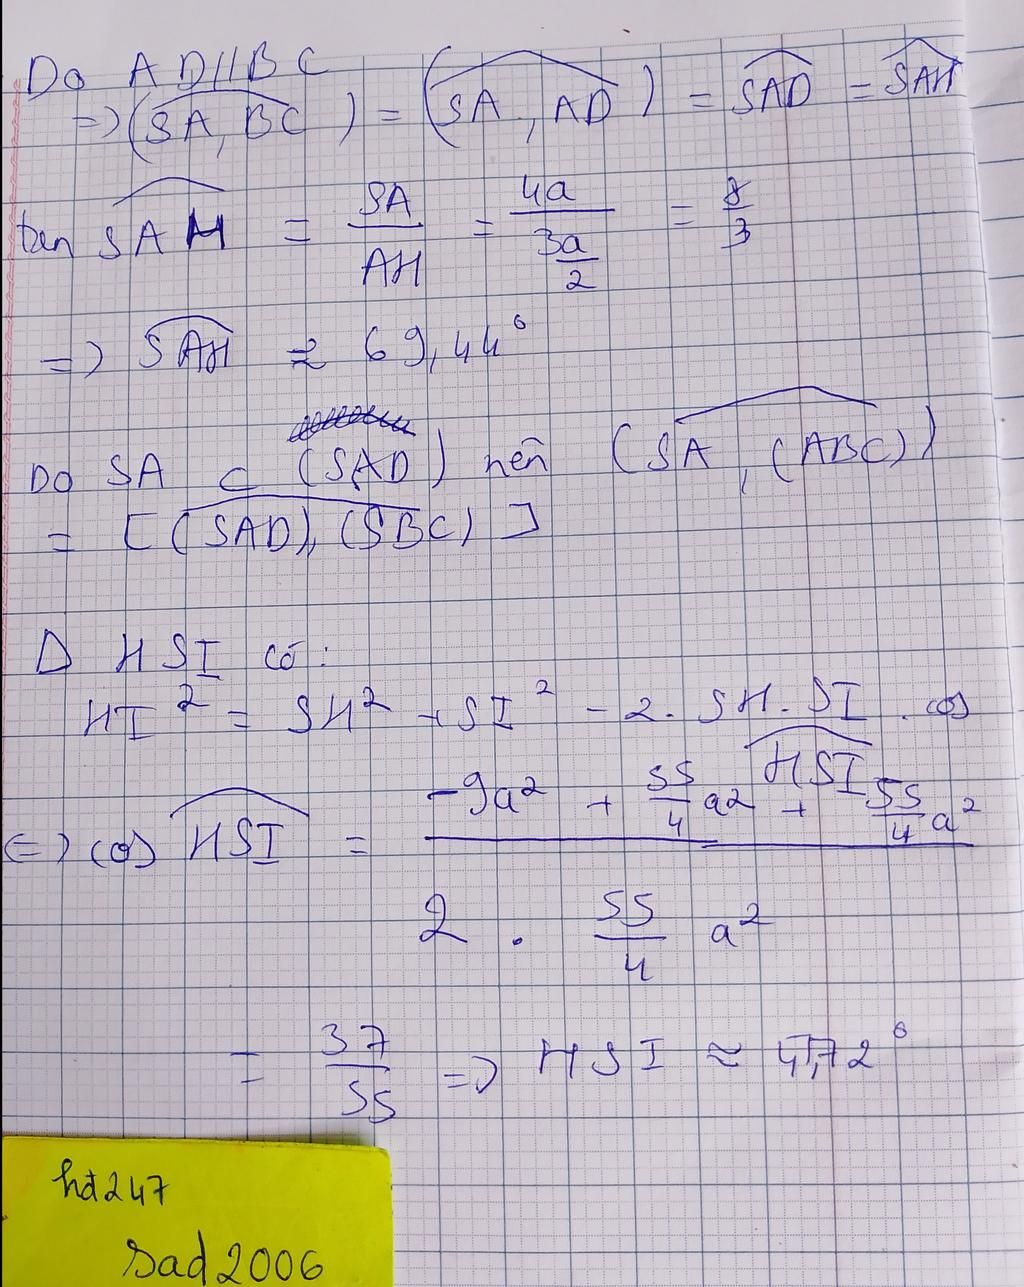 Do AD//BC
=> (SA, BC) = (SA, AD) = SAD = SAH
tan SAH = SA/AH = 4a/(3a/2) = 8/3
=> SAH ≈ 69,44°
DO SA ⊂ (SAD) nên (SA, (ABC))
= [(SAD), (SBC)]
Δ HSI có:
HI² = SH² + SI² - 2. SH. SI . cos HSI
<=> cos HSI = (-9a² + 55/4 a² + 55/4 a²)/(2 . 55/4 a²)
= 37/55 => HSI ≈ 47,72°
hđ247
sad2006